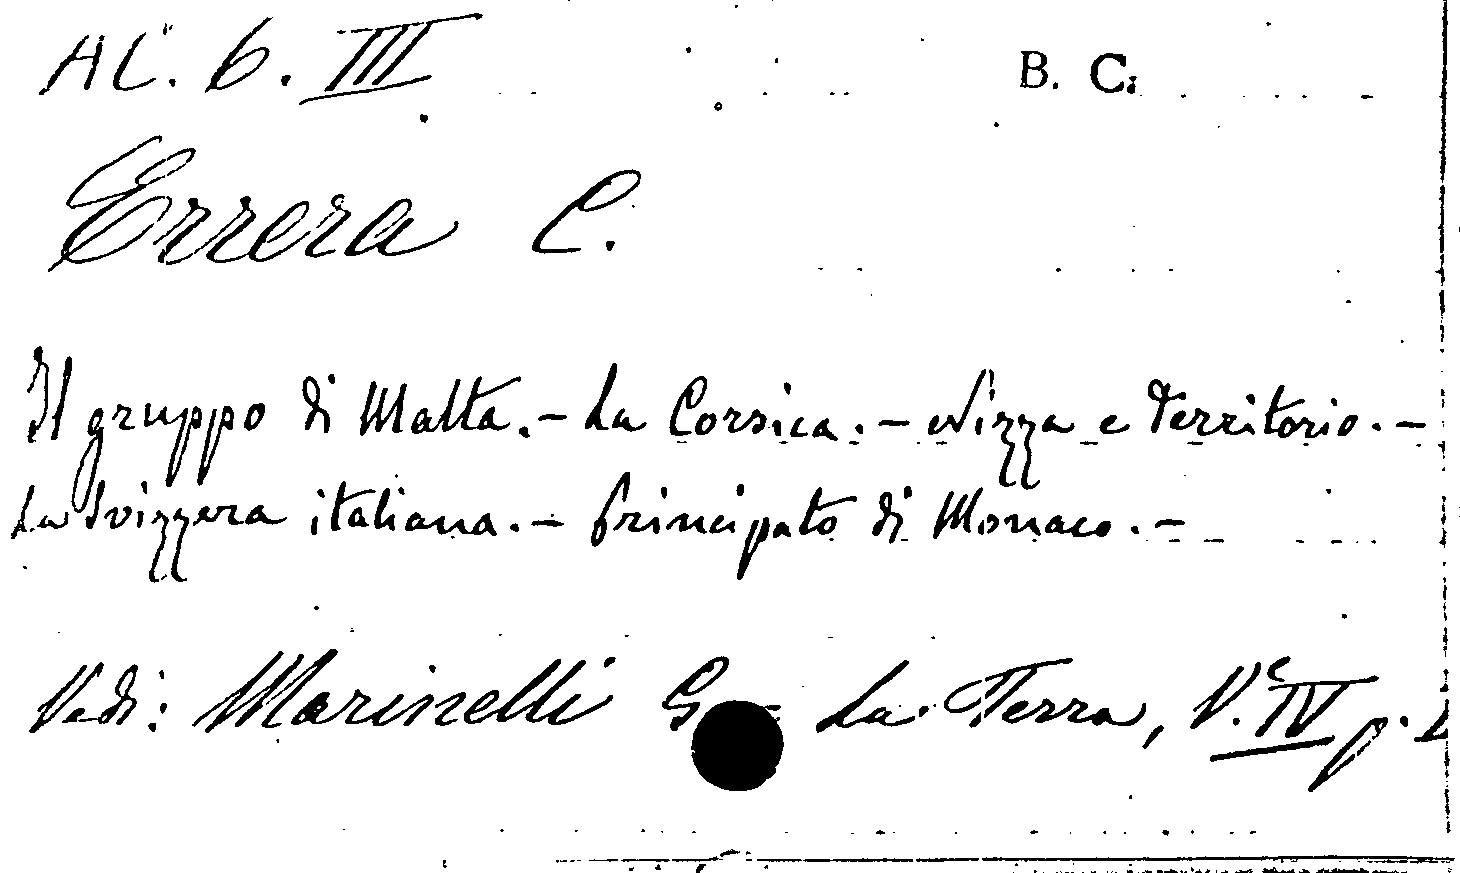 AC. 6. III B. C.
Errera C.
Il gruppo di Malta. - La Corsica. - Nizza e Territorio. -
La Svizzera italiana. - Principato di Monaco. -
Vedi: Marinelli G - La Terra, V. IV p.